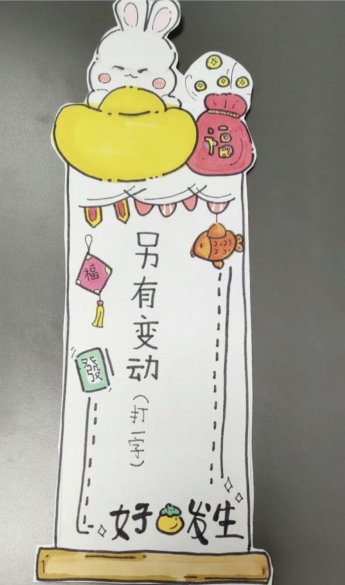 福
福
發
另有变动
(打一字)
好 发生